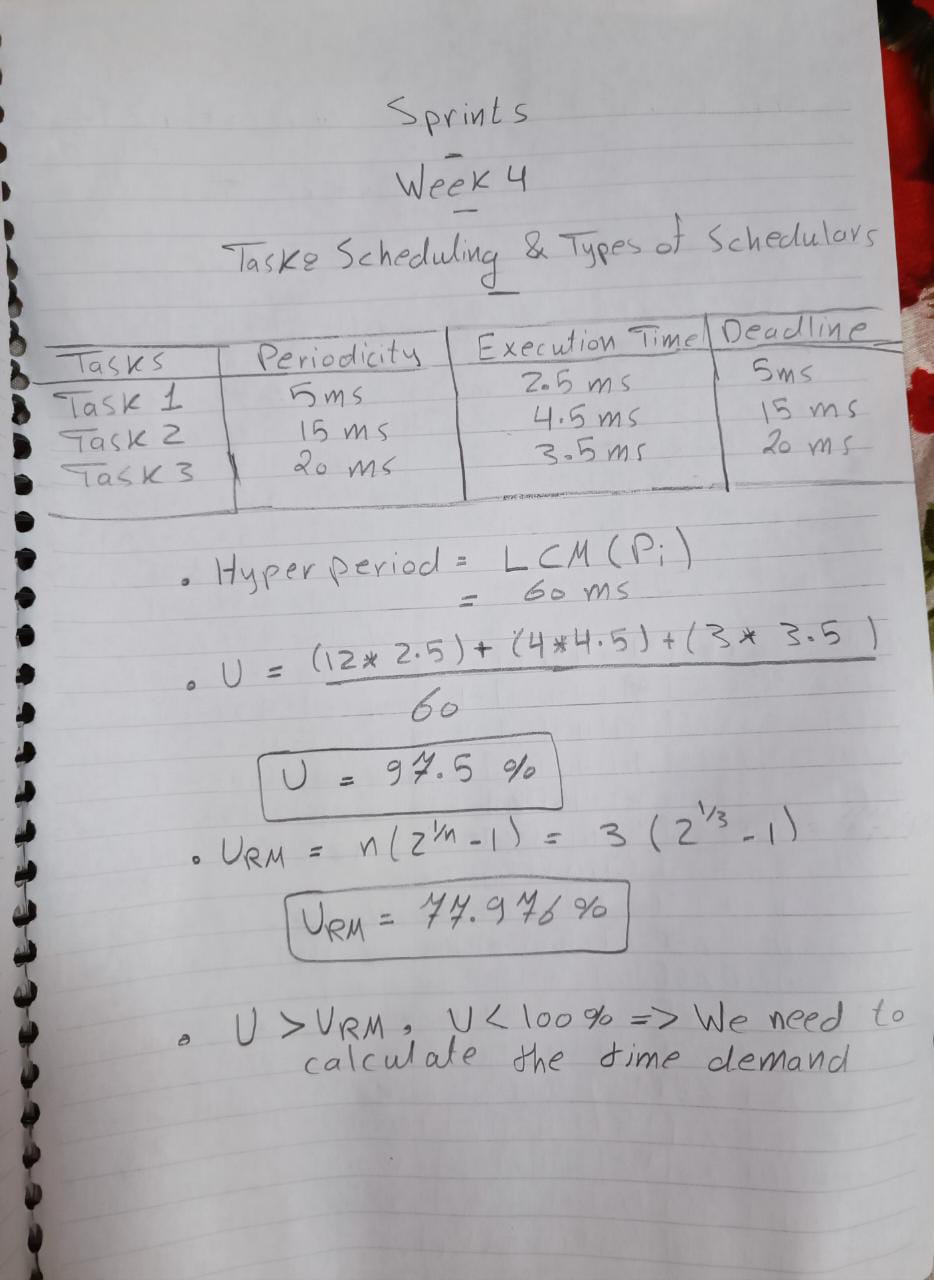 Sprints
Week 4
Task & Scheduling & Types of Schedulars
Tasks Periodicity Execution Time Deadline
Task 1 5 ms 2.5 ms 5ms
Task 2 15 ms 4.5 ms 15 ms
Task 3 20 ms 3.5 ms 20 ms
• Hyper period = LCM (Pi)
= 60 ms
• U = (12* 2.5) + (4*4.5) + (3* 3.5)
60
U = 97.5 %
• URM = n(2^1/n - 1) = 3 (2^1/3 - 1)
URM = 77.976 %
• U > URM, U < 100% => We need to
calculate the time demand